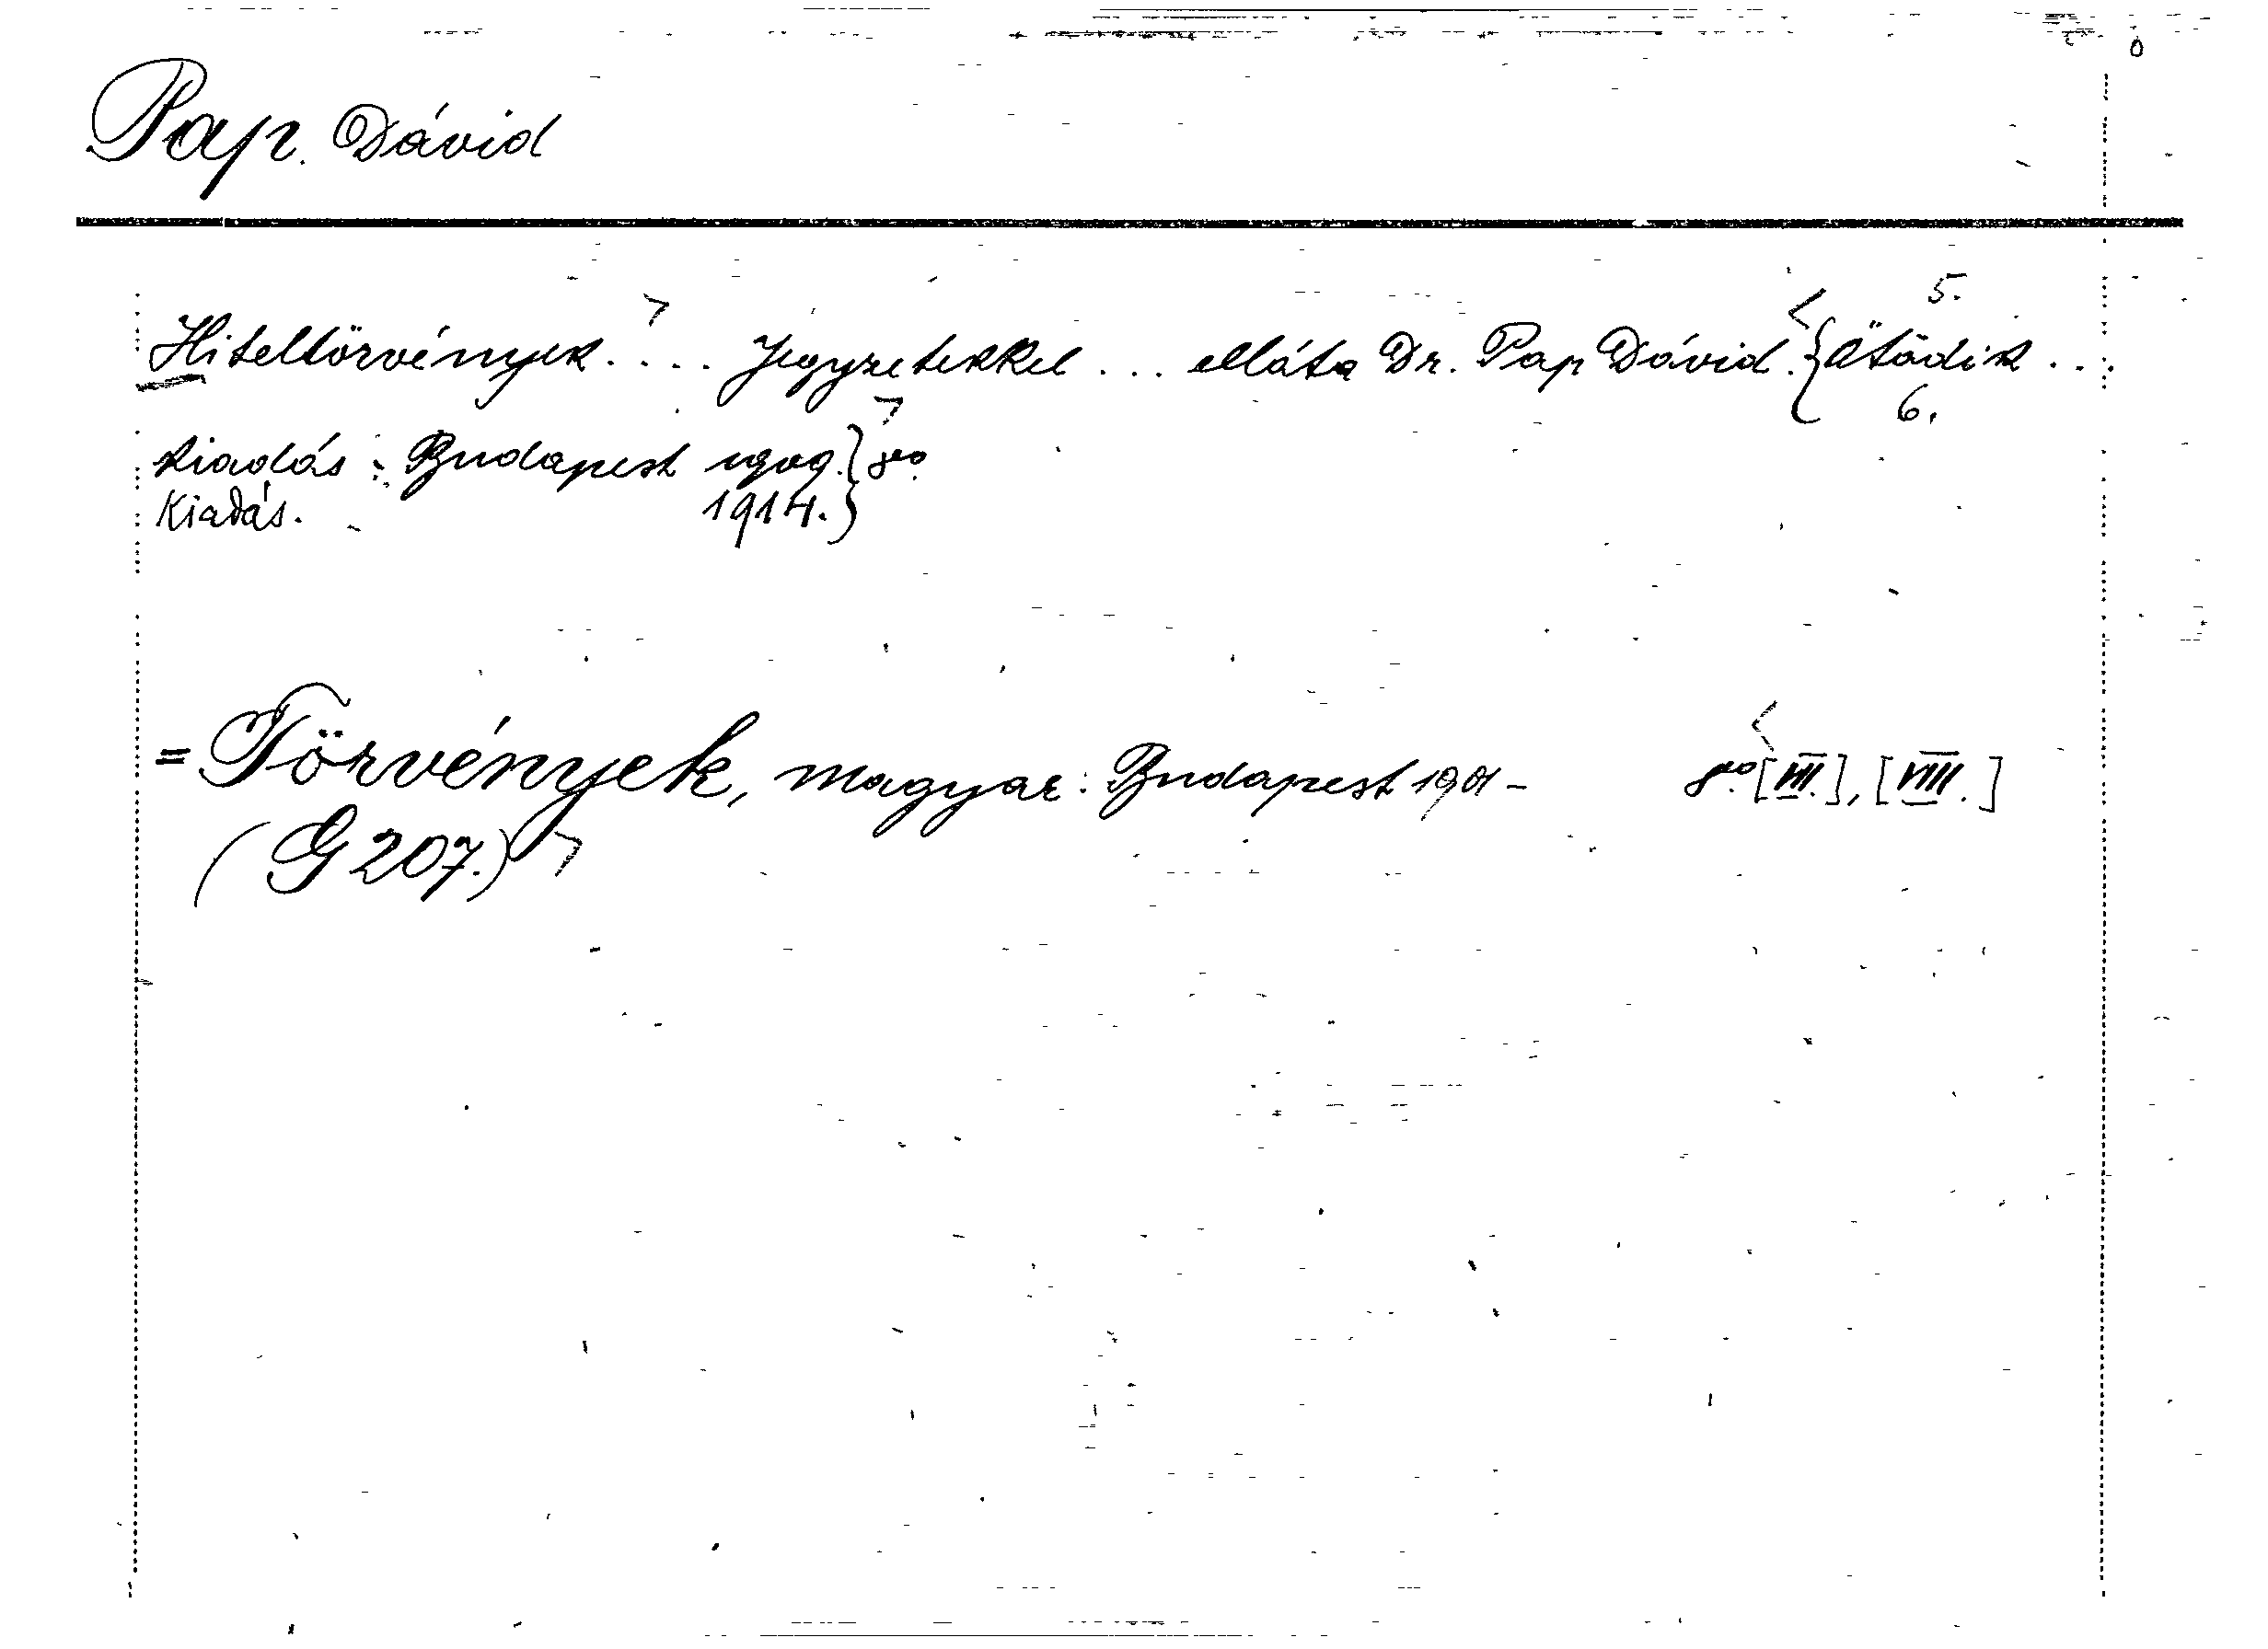 Pap. Dávid
5.
Hiteltörvények. ... Jegyzetekkel ... elláta Dr. Pap Dávid. { Ötödik ...
6.
kiadás: Budapest 1909. } 8vo.
Kiadás. 1914. }
= Törvények, magyar: Budapest 1901- 8vo. [VII.], [VIII.]
(G 207.)